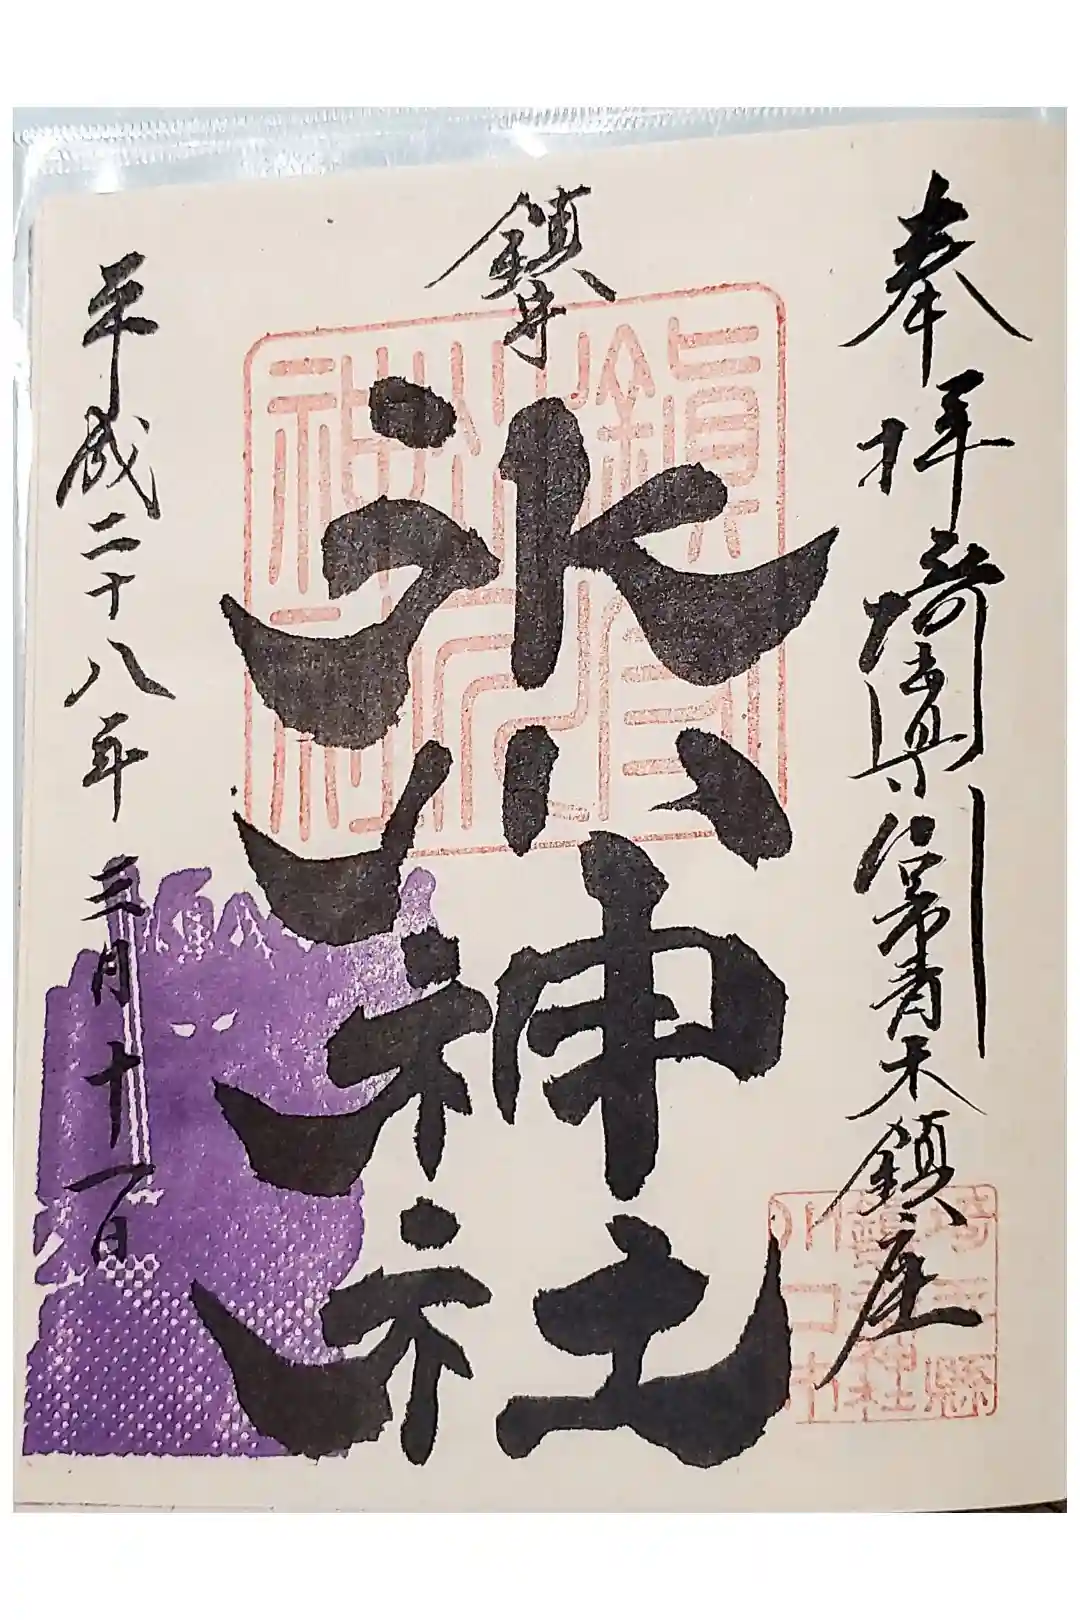 奉拝 埼玉県川口市青木鎮座
鎮守
氷川神社
平成二十八年 三月十一日
埼玉縣
川口市